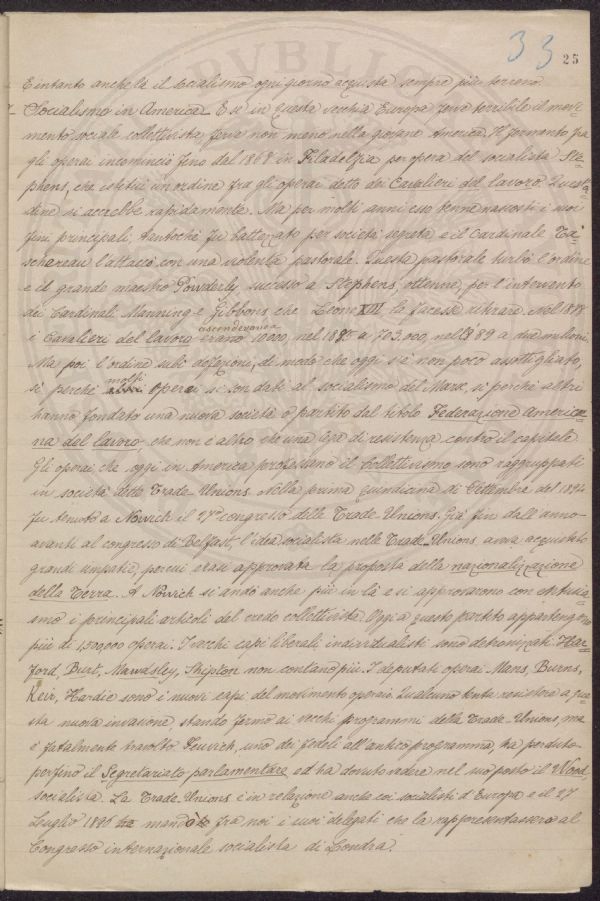 33
25
E intanto anche là il socialismo ogni giorno acquista sempre più terreno.
Socialismo in America. E se in questa vecchia Europa ferve terribile il movi-
mento sociale collettivista ferve non meno nella giovane America. Il fermento fra
gli operai incominciò fino dal 1868 in Filadelfia per opera del socialista Ste-
phens, che istituì un ordine fra gli operai detto dei Cavalieri del lavoro. Quest'or-
dine si accrebbe rapidamente. Ma per molti anni esso tenne nascosti i suoi
fini principali, tantochè fu battezzato per società segreta e il Cardinale Ta-
schereau l'attaccò con una violenta pastorale. Questa pastorale turbò l'ordine
e il grande maestro Powderly successo a Stephens, ottenne, per l'intervento
dei Cardinali Manning e Gibbons che Leone XIII la facesse ritirare. Nel 1878
i Cavalieri del lavoro erano ascendevano 10000, nel 1885 a 703,000, nell'89 a due milioni.
Ma poi l'ordine subì defezioni, di modo che oggi s'è non poco assottigliato,
sì perchè molti operai si son dati al socialismo del Marx, sì perchè altri
hanno fondato una nuova società o partito dal titolo Federazione America-
na del lavoro che non è altro che una lega di resistenza contro il capitale.
Gli operai che oggi in America professano il Collettivismo sono raggruppati
in società dette Trade Unions. Nella prima quindicina di Settembre del 1894
fu tenuto a Norvich il 27º congresso delle Trade Unions. Già fin dall'anno
avanti al congresso di Belfast, l'idea socialista nelle Trade-Unions aveva acquistato
grandi simpatie, percui erasi approvata la proposta della nazionalizzazione
della Terra. A Norvich si andò anche più in là e si approvarono con entusia-
smo i principali articoli del credo collettivista. Oggi a questo partito appartengono
più di 1,500,000 operai. I vecchi capi liberali individualisti sono detronizzati. Har-
ford, Burt, Mawasley, Shipton non contano più. I deputati operai Mans, Burns,
Keir, Hardie sono i nuovi capi del movimento operaio. Qualcuno tenta resistere a que-
sta nuova invasione, stando fermo ai vecchi programmi della Trade-Unions, ma
è fatalmente travolto. Feuvich, uno dei fedeli all'antico programma, ha perduto
perfino il Segretariato parlamentare ed ha dovuto vedere nel suo posto il Wood
socialista. La Trade-Unions è in relazione anche coi socialisti d'Europa e il 27
Luglio 1896 mandò fra noi i suoi delegati che la rappresentassero al
Congresso internazionale socialista di Londra.